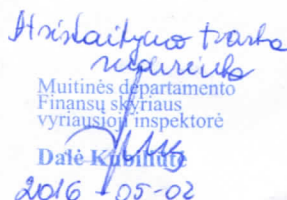 Atsiskaitymo tvarka
nepareinta
Muitinės departamento
Finansų skyriaus
vyriausioji inspektorė
Dalė Kubiliūtė
2016-05-02